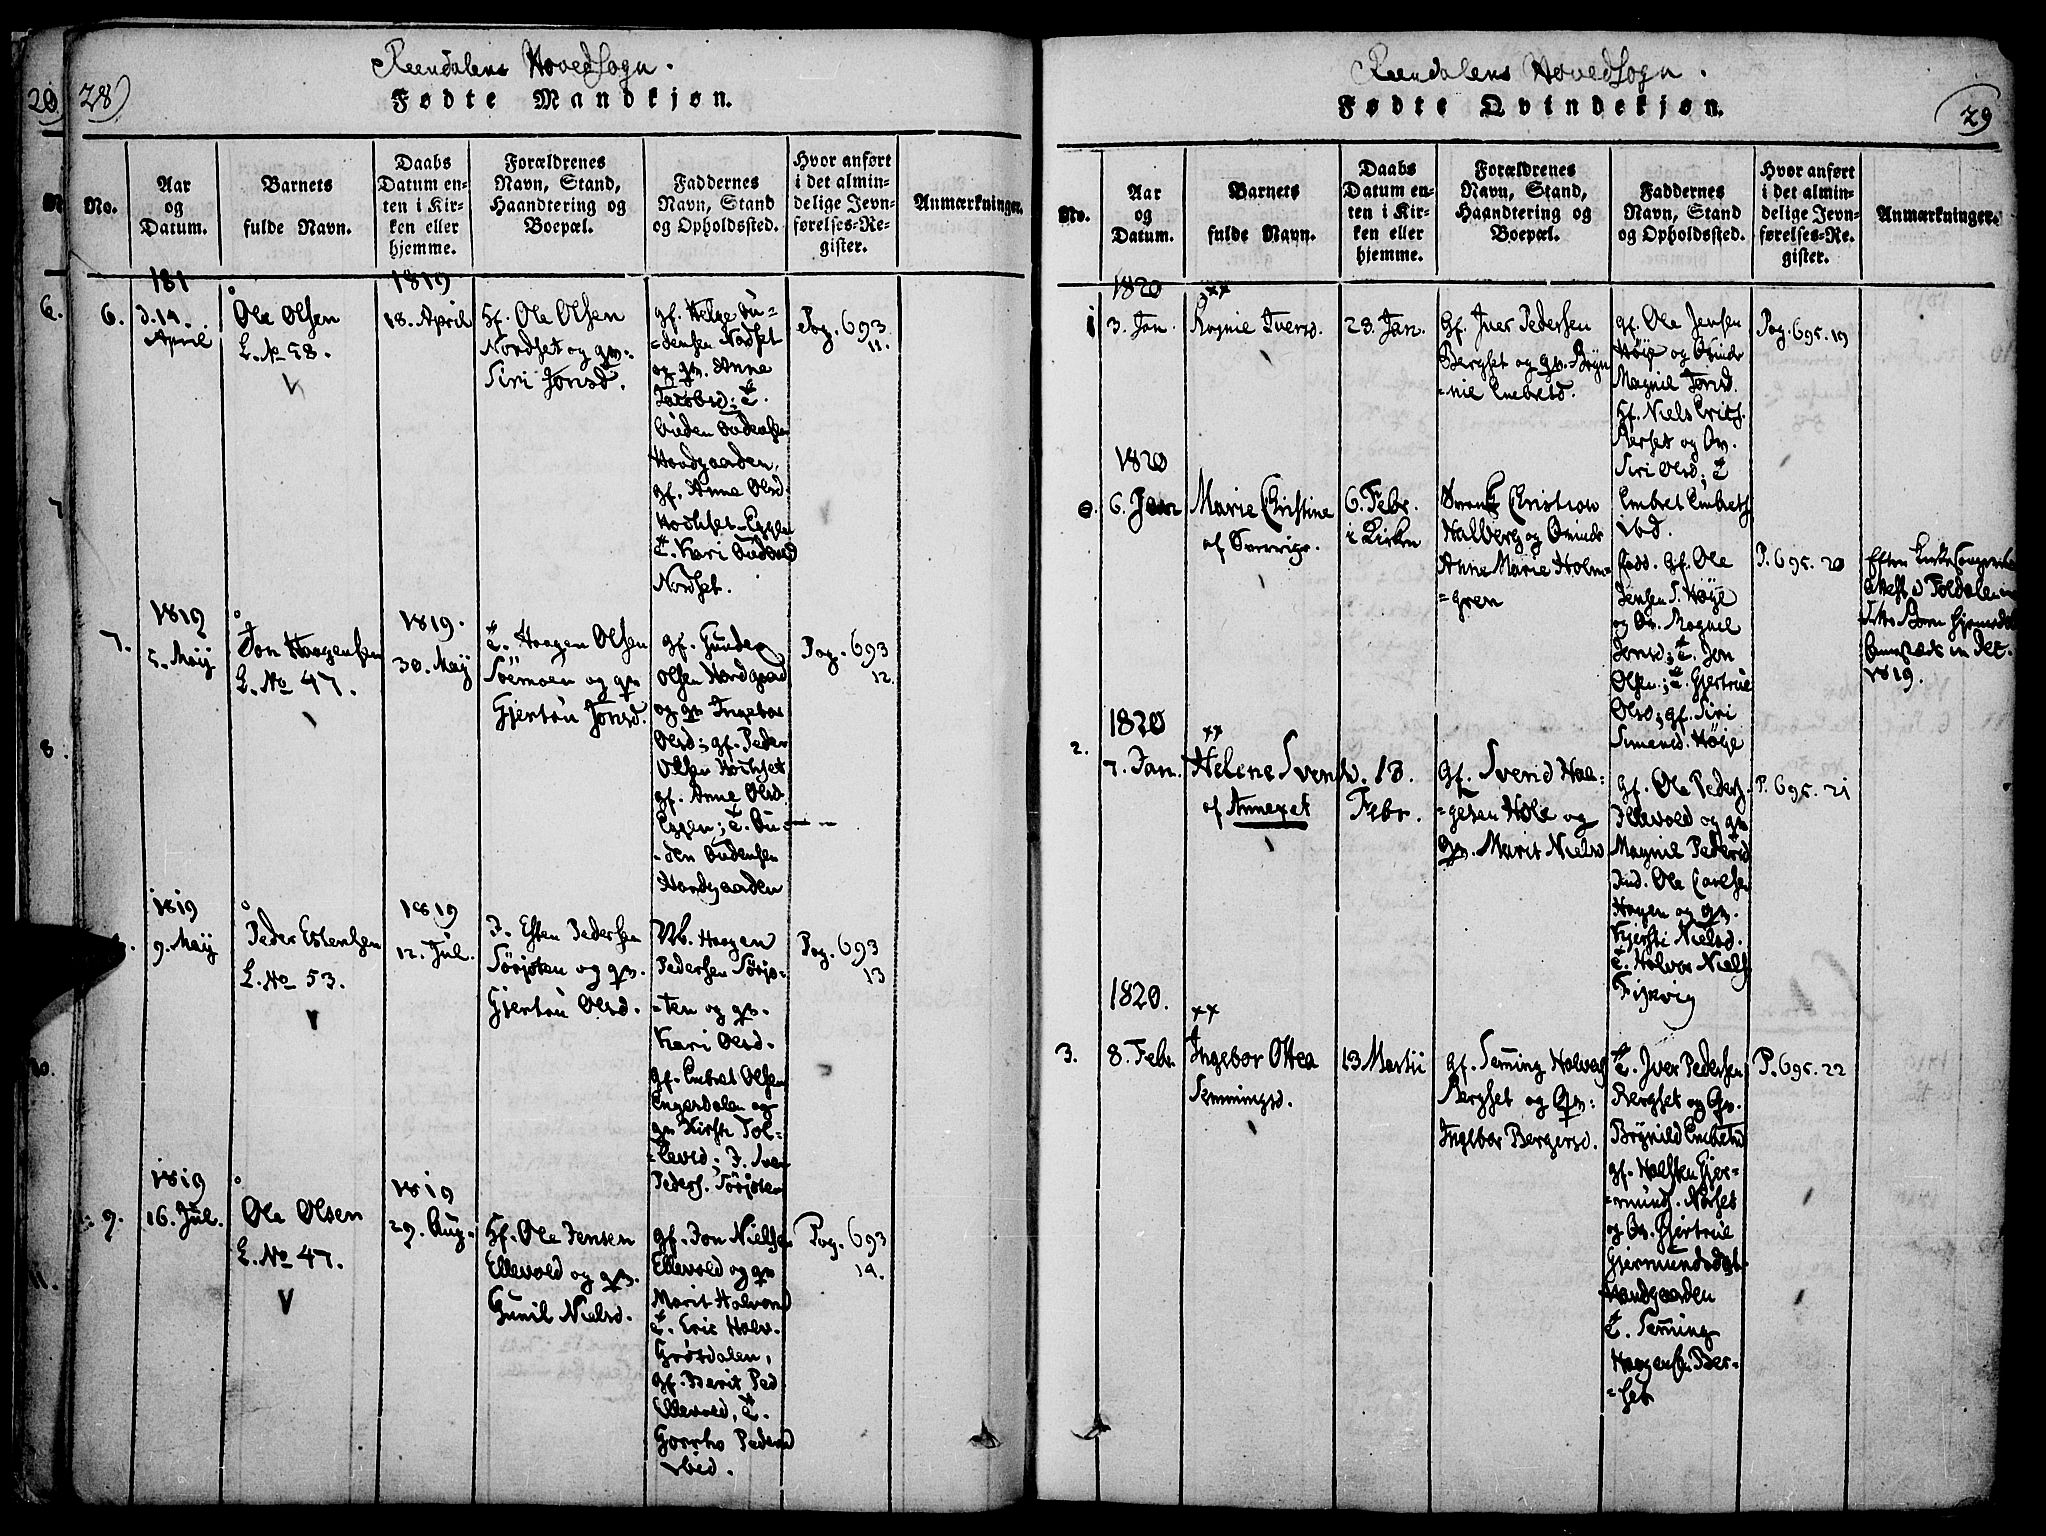 28)
Reendalens Hovedsogn.
Fødte Mandkjøn.
No.
Aar
og
Datum.
Barnets
fulde Navn.
Daabs
Datum en-
ten i Kir-
ken eller
hjemme.
Forældrenes
Navn, Stand,
Haandtering og
Boepæl.
Faddernes
Navn, Stand
og Opholdssted.
Hvor anført
i det almin-
delige Jevn-
førelses-Re-
gister.
Anmærkninger.
6.
181
d. 14.
April
Ole Olsen
L. No 58.
1819
18. April
Gf. Ole Olsen
Nordset og qv.
Siri Jonsd.
gf. Helge Au-
=densen Nodset
og qv. Anne
Jacobsd;
Auden Audensen
Hordgaarden,
gf. Anne Olsd.
Eggen
Kari
Nordset.
Pag. 693
11.
7.
1819
5. Maÿ
Jon Haagensen
L. No 47.
1819.
30. Maÿ
Haagen Olsen
Sömoen og qv
Gjertru Jonsd.
gf. Gunder
Olsen Hordgaard
og qv Ingebor
Olsd; gf. Peder
Olsen
gf. Anne Olsd.
Eggen; Au-
-den Audensen
Hordgaarden
Pag. 693
12.
1819
9. Maÿ
Peder Estensen
L. No 53.
1819
12. Jul.
J. Esten Pedersen
Sörjoten og qv.
Gjertru Olsd.
Haagen
Pedersen Sörjo-
-ten og qv.
Kari Olsd.
gf. Embret Olsen
Engerdalen og
qv Kirsti Tol-
=levsd; J. Iver
Peders. Sörjoten
Pag. 693
13
9.
1819
16. Jul.
Ole Olsen
L. No 47.
1819
29. Aug.
Gf. Ole Jensen
Ellevold og qv.
Gunil Nielsd.
gf. Jon Nielsen
Ellevold og qv
Marit Halvord
Eric Halv.
Grötdalen,
gf. Berit Ped
Ellevold,
Pedersd
ibid.
Pag. 693
14.
29
Reendalens Hovedsogn.
Fødte Qvindekjøn.
No.
Aar
og
Datum.
Barnets
fulde Navn.
Daabs
Datum en-
ten i Kir-
ken eller
hjemme.
Forældrenes
Navn, Stand,
Haandtering og
Boepæl.
Faddernes
Navn, Stand
og Opholdssted.
Hvor anført
i det almin-
delige Jevn-
førelses-Re-
gister.
Anmærkninger.
1
1820
3. Jan.
Ragnie Iversd.
23. Jan.
Gf. Iver Pedersen
Bergset og qv. Bryn
=nie Embretsd.
gf. Ole Jensen
Höije og Qvinde
Magnil Jonsd.
Gf. Niels Erics.
og Qv.
Siri Olsd;
Embret Embrets
ibd.
Pag. 695. 19
1820
6. Jan
Marie Christine
af Sverrige.
6. Febr.
i Kirken
Svensk Christian
Halberg og Qvinde
Anne Marie Holm-
=gren
fadd. gf. Ole
Jensen S. Höije
og Qv. Magnil
Jonsd; Jon
Olsen; Gjertrue
Olsd; gf. Siri
Simensd. Höije
P. 695. 20
Efter
attest i Foldalen
Barn hjemmedöbt
in Dec.
1819.
2.
1820
7. Jan.
Helene Svensd.
af Annexet
13.
Febr.
Gf. Svend Hal-
=gesen Hole og
qv. Marit Nielsd
gf. Ole Peders.
Ellevold og qv
Magnil Pedersd
Ind. Ole Carlsen
Hagen og qv.
Kjersti Nielsd.
Halvor Niels
Fiskvig
P. 695. 21
3.
1820.
8. Febr.
Ingebor Ottea
Semmingsd.
13 Martii
gf. Semming Halvors
Bergset og Qv:
Ingebor Bergersd.
Iver Pedersen
Bergset og Qv.
Brÿnild Embretsd
gf. Halsten Gjer-
-munds. Norset
og Qv. Gjertrue
Gjermundsdat.
Hordgaarden
Semming
Haagensen Ber-
=set
P. 695. 22